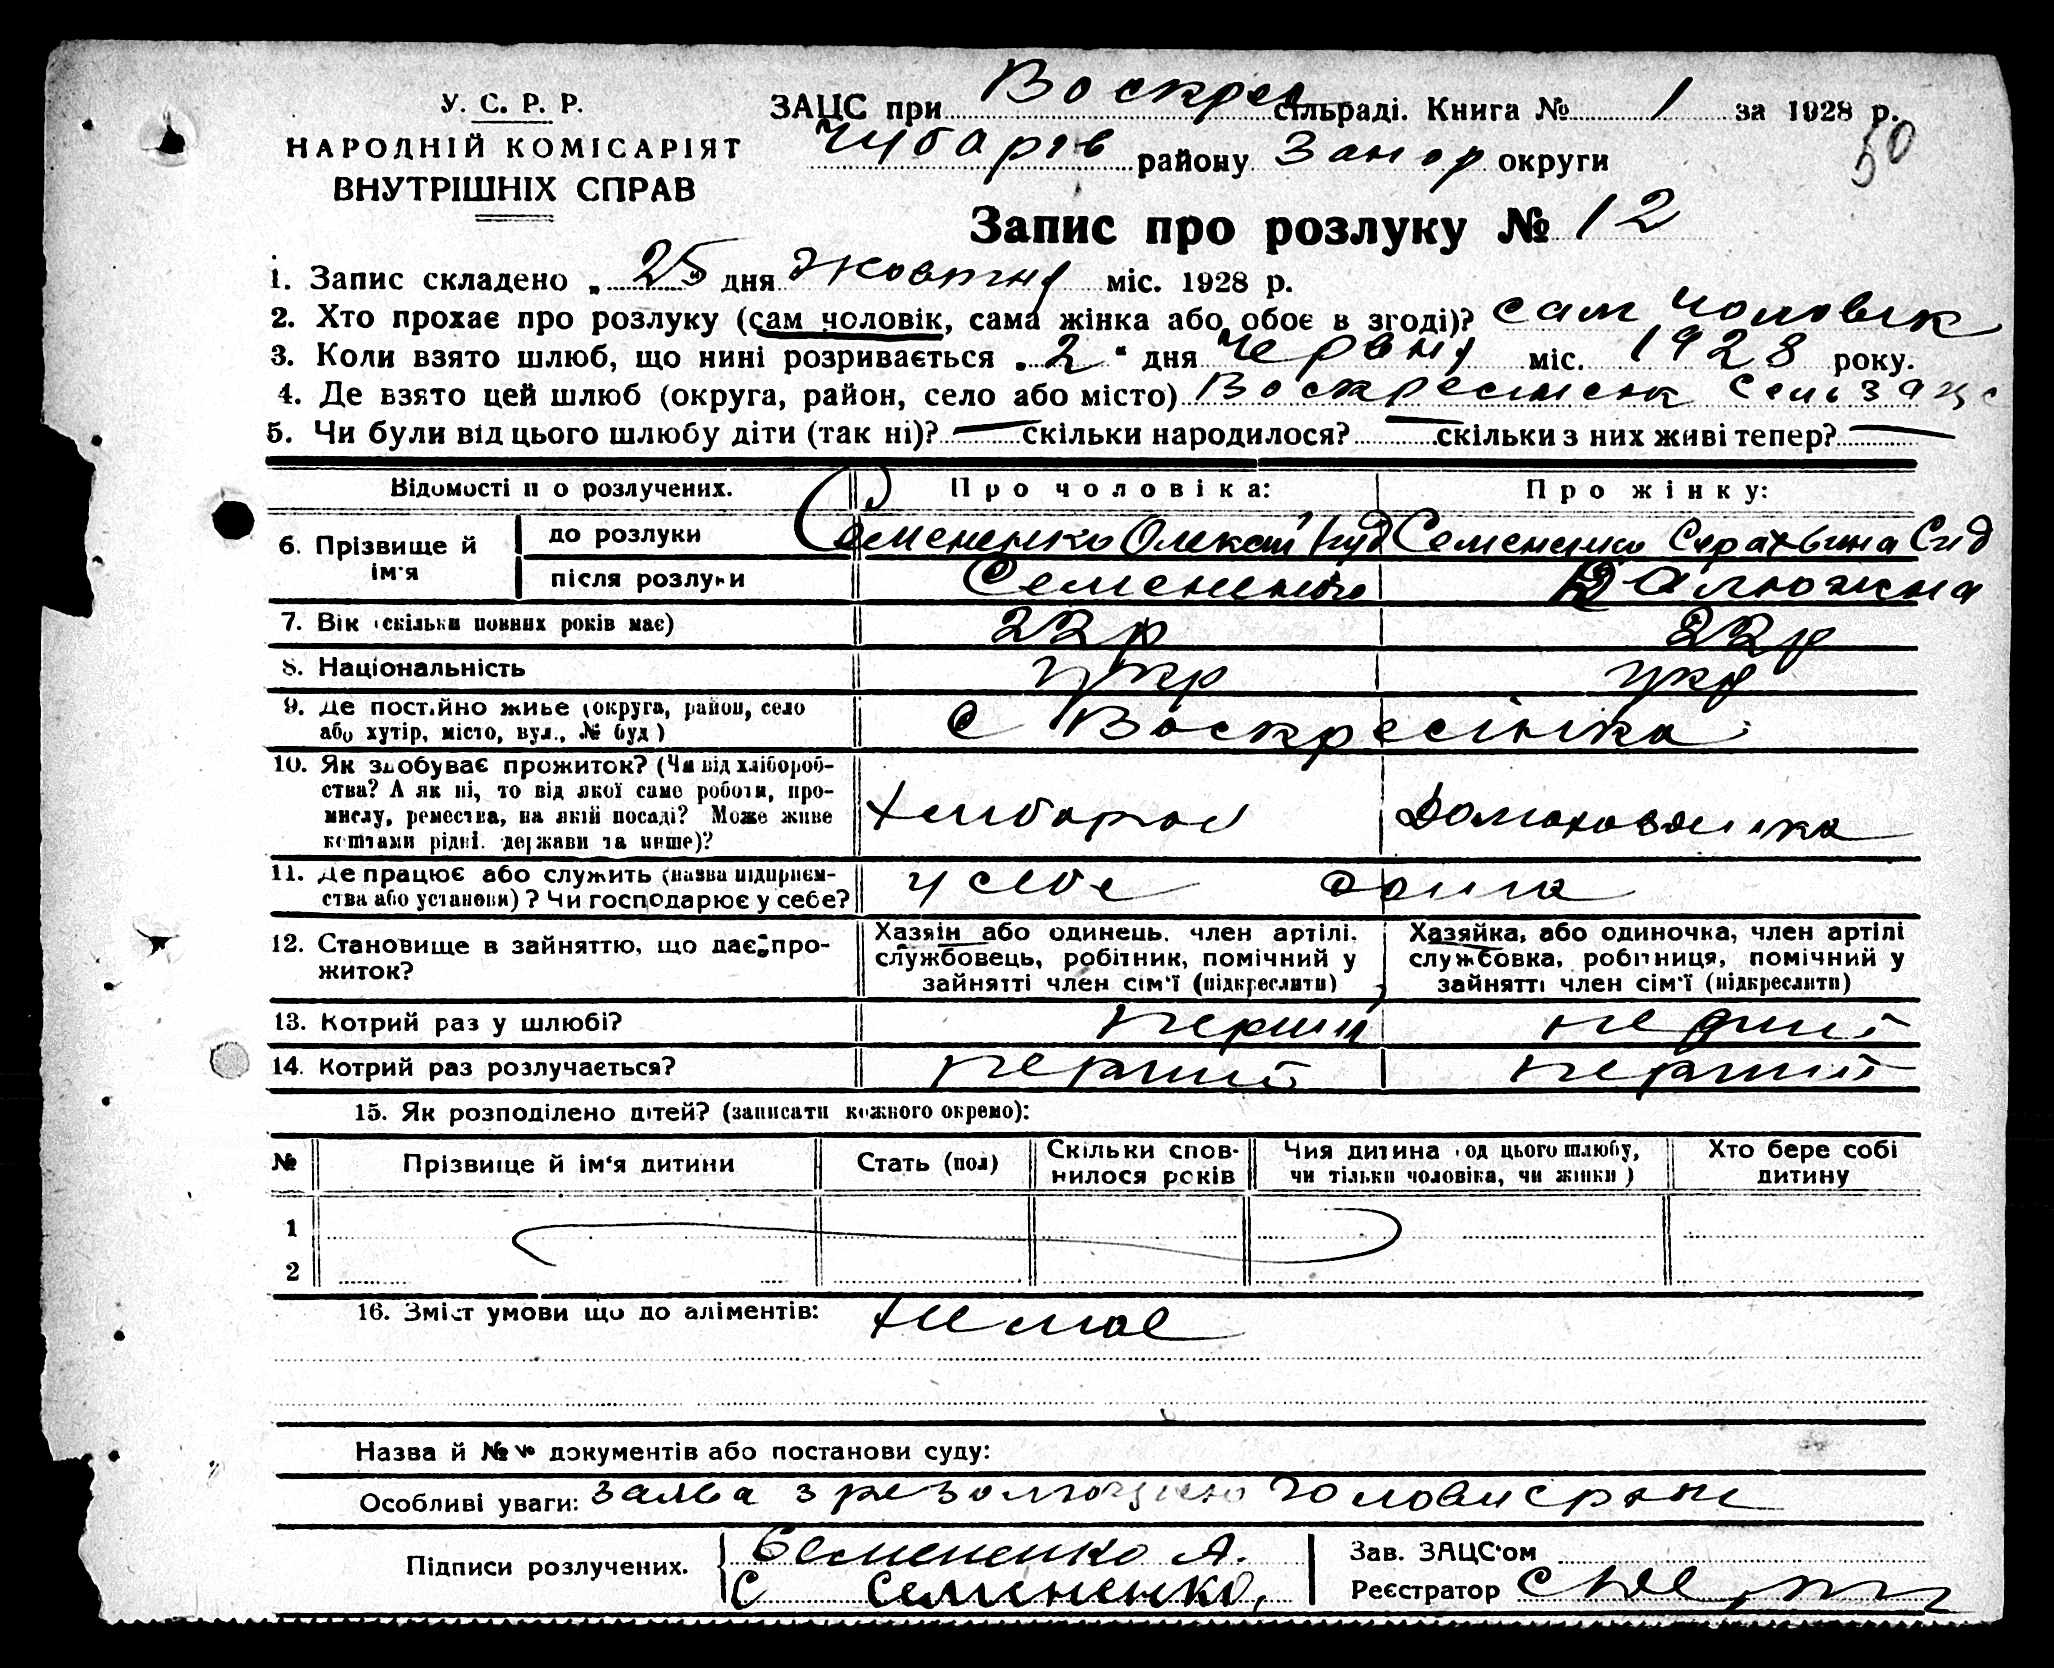 У. С. Р. Р.
НАРОДНІЙ КОМІСАРІЯТ
ВНУТРІШНІХ СПРАВ
ЗАЦС при Воскрес сільраді. Книга № 1 за 1928 р.
50
Чубарів району Запор округи
Запис про розлуку № 12
1. Запис складено „ 25 “ дня жовтня міс. 1928 р.
2. Хто прохає про розлуку (сам чоловік, сама жінка або обоє в згоді)? сам чоловік
3. Коли взято шлюб, що нині розривається „ 2 “ дня червня міс. 1928 року.
4. Де взято цей шлюб (округа, район, село або місто) Воскресінськ сельзацс
5. Чи були від цього шлюбу діти (так ні)? — скільки народилося? — скільки з них живі тепер? —
Відомості по розлучених. Про чоловіка: Про жінку:
6. Прізвище й ім'я до розлуки Семененко Олексій Семененко Сид
після розлуки Семененко Калюжна
7. Вік (скільки повних років має) 22 р 22 р
8. Національність укр укр
9. Де постійно живе (округа, район, село
або хутір, місто, вул., № буд.) с Воскресінка
10. Як здобуває прожиток? (Чи від хліборобства?
А як ні, то від якої саме роботи, промислу,
ремества, на якій посаді? Може живе
коштами рідні, держави та инше)? хлібороб Домохозяйка
11. Де працює або служить (назва підприємства
або установи)? Чи господарює у себе? у себе дома
12. Становище в зайняттю, що дає прожиток?
Хазяїн або одинець, член артілі, службовець, робітник, помічний у зайнятті член сім'ї (підкреслити)
Хазяйка, або одиночка, член артілі службовка, робітниця, помічний у зайнятті член сім'ї (підкреслити)
13. Котрий раз у шлюбі? перший перший
14. Котрий раз розлучається? перший перший
15. Як розподілено дітей? (записати кожного окремо):
№ Прізвище й ім'я дитини Стать (пол) Скільки сповнилося років Чия дитина (од цього шлюбу, чи тільки чоловіка, чи жінки) Хто бере собі дитину
1
2
16. Зміст умови що до аліментів: немає
Назва й №№ документів або постанови суду:
Особливі уваги: заява з резолюцією голови срради
Підписи розлучених. Семененко А.
С Семененко,
Зав. ЗАЦС'ом
Реєстратор